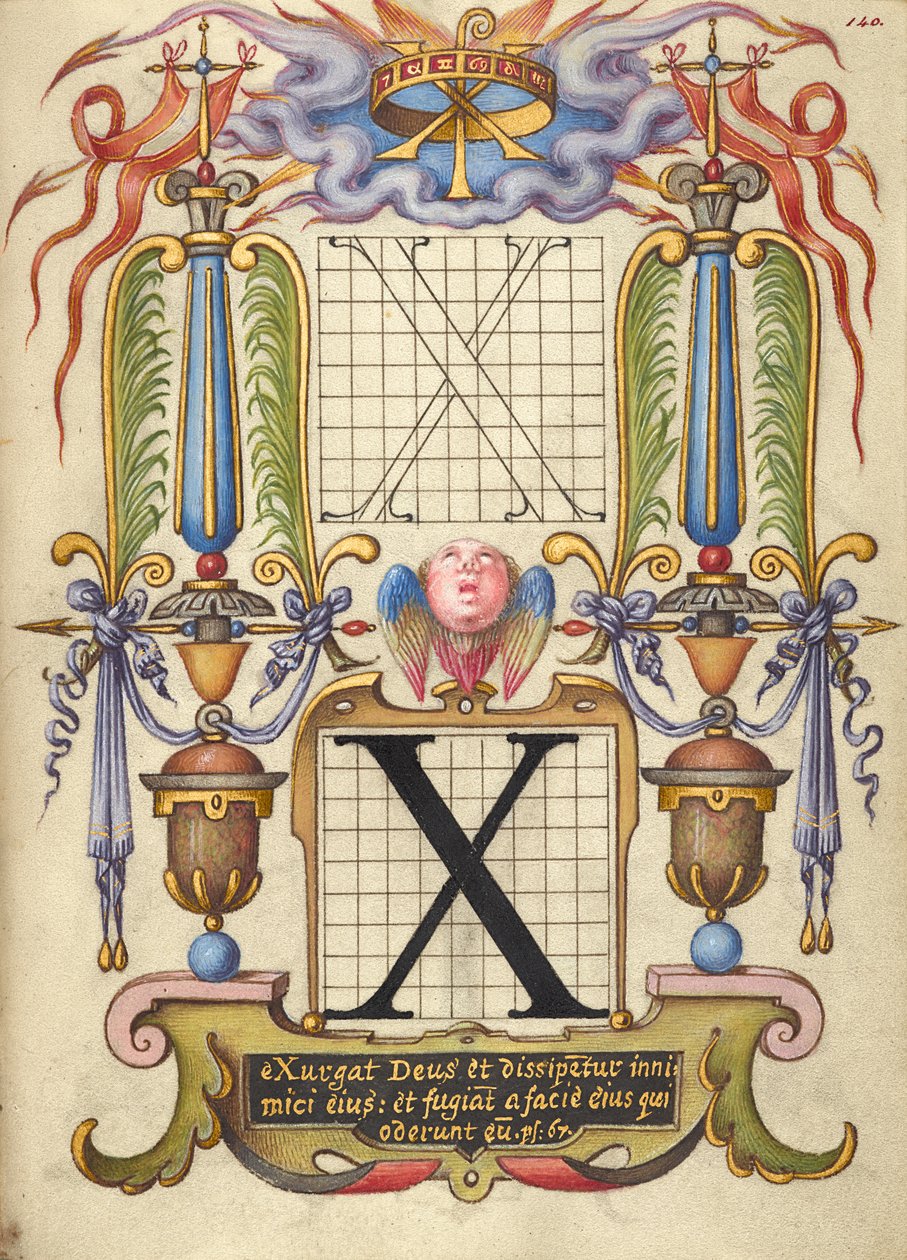 140.
X
X
eXurgat Deus et dissipētur inni:
mici eius: et fugiāt a facie eius qui
oderunt eū. ps: 67.